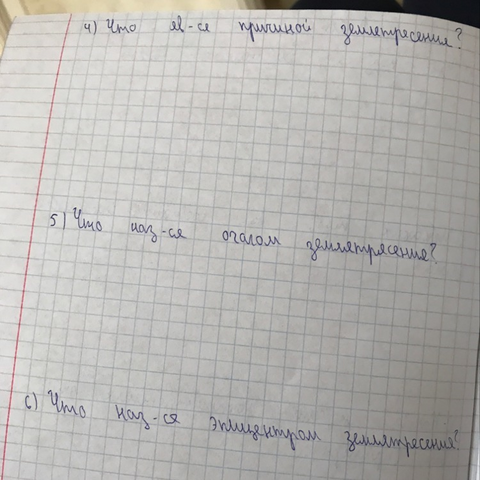 4) Что яв-ся причиной землетресения?
5) Что наз-ся очагом землятрясение?
6) Что наз-ся эпицентром землятресения?